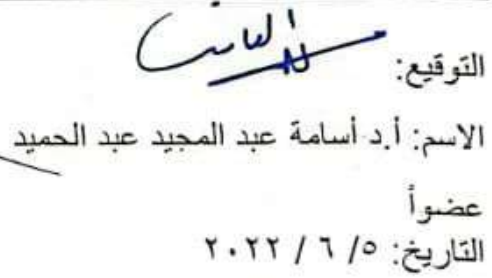 التوقيع:
الاسم: أ.د أسامة عبد المجيد عبد الحميد
عضواً
التاريخ: ٥/ ٦ / ٢٠٢٢